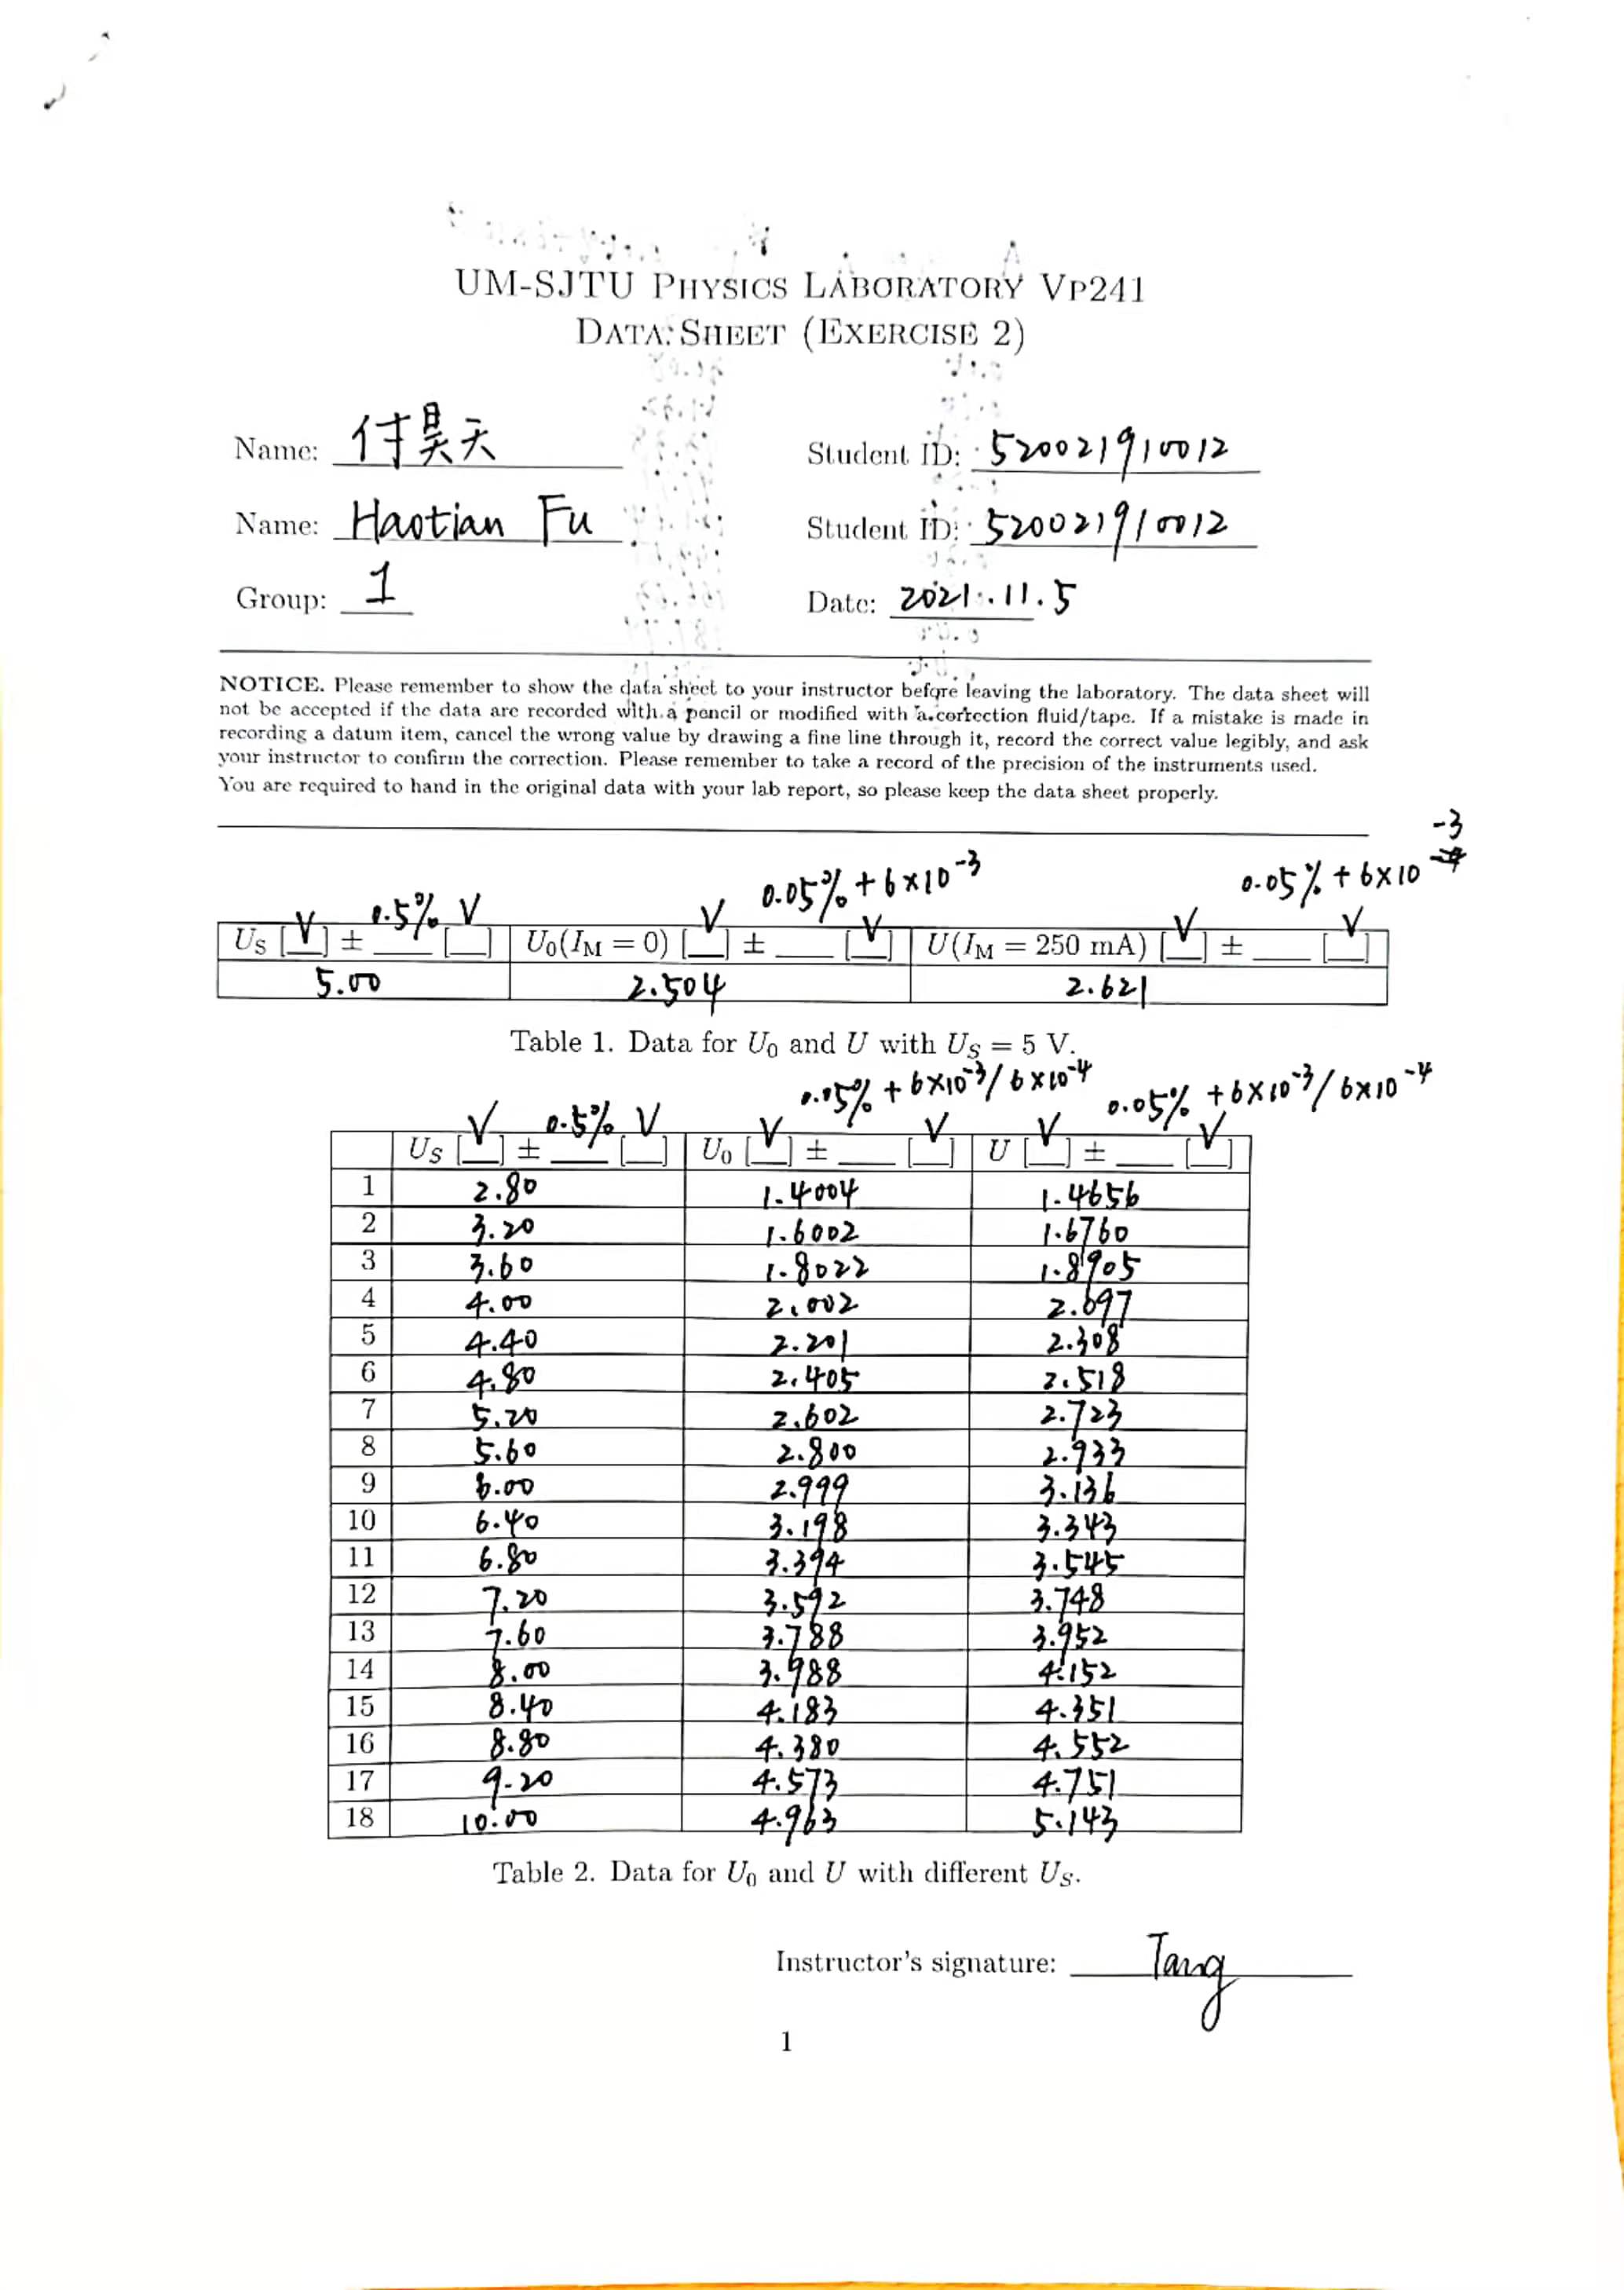 UM-SJTU PHYSICS LABORATORY VP241
DATA SHEET (EXERCISE 2)
Name: 付昊天 Student ID: 520021910012
Name: Haotian Fu Student ID: 520021910012
Group: 1 Date: 2021.11.5
NOTICE. Please remember to show the data sheet to your instructor before leaving the laboratory. The data sheet will
not be accepted if the data are recorded with a pencil or modified with a correction fluid/tape. If a mistake is made in
recording a datum item, cancel the wrong value by drawing a fine line through it, record the correct value legibly, and ask
your instructor to confirm the correction. Please remember to take a record of the precision of the instruments used.
You are required to hand in the original data with your lab report, so please keep the data sheet properly.
U_S [V] ± 0.5% [V] U_0(I_M = 0) [V] ± 0.05% + 6×10^-3 [V] U(I_M = 250 mA) [V] ± 0.05% + 6×10^-3 [V]
5.00 2.504 2.621
Table 1. Data for U_0 and U with U_S = 5 V.
U_S [V] ± 0.5% [V] U_0 [V] ± 0.05% + 6×10^-3/6×10^-4 [V] U [V] ± 0.05% + 6×10^-3/6×10^-4 [V]
1 2.80 1.4004 1.4656
2 3.20 1.6002 1.6760
3 3.60 1.8022 1.8905
4 4.00 2.002 2.097
5 4.40 2.201 2.308
6 4.80 2.405 2.518
7 5.20 2.602 2.723
8 5.60 2.800 2.933
9 6.00 2.999 3.136
10 6.40 3.198 3.343
11 6.80 3.394 3.545
12 7.20 3.592 3.748
13 7.60 3.788 3.952
14 8.00 3.988 4.152
15 8.40 4.183 4.351
16 8.80 4.380 4.552
17 9.20 4.573 4.751
18 10.00 4.963 5.143
Table 2. Data for U_0 and U with different U_S.
Instructor's signature: Tang
1